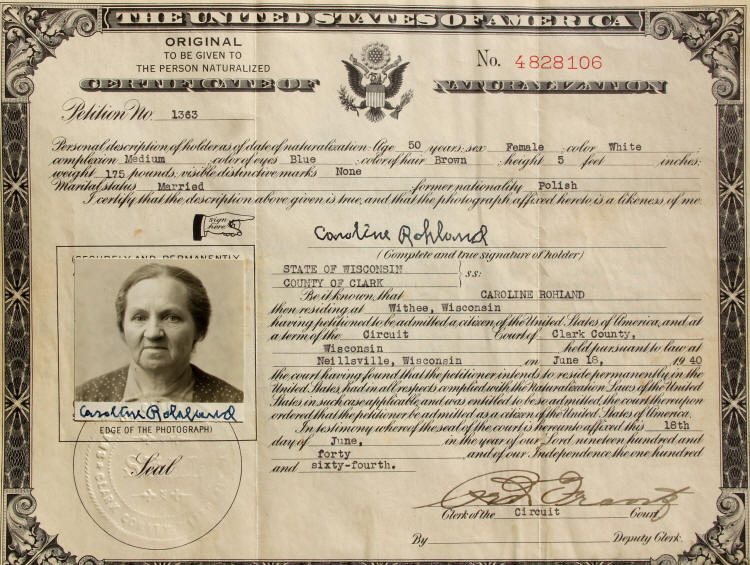 THE UNITED STATES OF AMERICA
ORIGINAL
TO BE GIVEN TO
THE PERSON NATURALIZED
No. 4828106
CERTIFICATE OF NATURALIZATION
Petition No. 1363
Personal description of holder as of date of naturalization: Age 50 years; sex Female; color White
complexion Medium color of eyes Blue; color of hair Brown; height 5 feet inches;
weight 175 pounds; visible distinctive marks None
Marital status Married former nationality Polish
I certify that the description above given is true, and that the photograph affixed hereto is a likeness of me.
sign here
Caroline Rohland
(Complete and true signature of holder)
(SECURELY AND PERMANENTLY
STATE OF WISCONSIN
COUNTY OF CLARK
ss:
Be it known, that CAROLINE ROHLAND
then residing at Withee, Wisconsin
having petitioned to be admitted a citizen of the United States of America, and at
a term of the Circuit Court of Clark County,
Wisconsin held pursuant to law at
Neillsville, Wisconsin on June 18, 1940
the court having found that the petitioner intends to reside permanently in the
United States, had in all respects complied with the Naturalization Laws of the United
States in such case applicable, and was entitled to be so admitted, the court thereupon
ordered that the petitioner be admitted as a citizen of the United States of America.
Caroline Rohland
EDGE OF THE PHOTOGRAPH)
Seal
In testimony whereof the seal of the court is hereunto affixed this 18th
day of June, in the year of our Lord nineteen hundred and
forty and of our Independence the one hundred
and sixty-fourth.
Clerk of the Circuit Court
By Deputy Clerk.